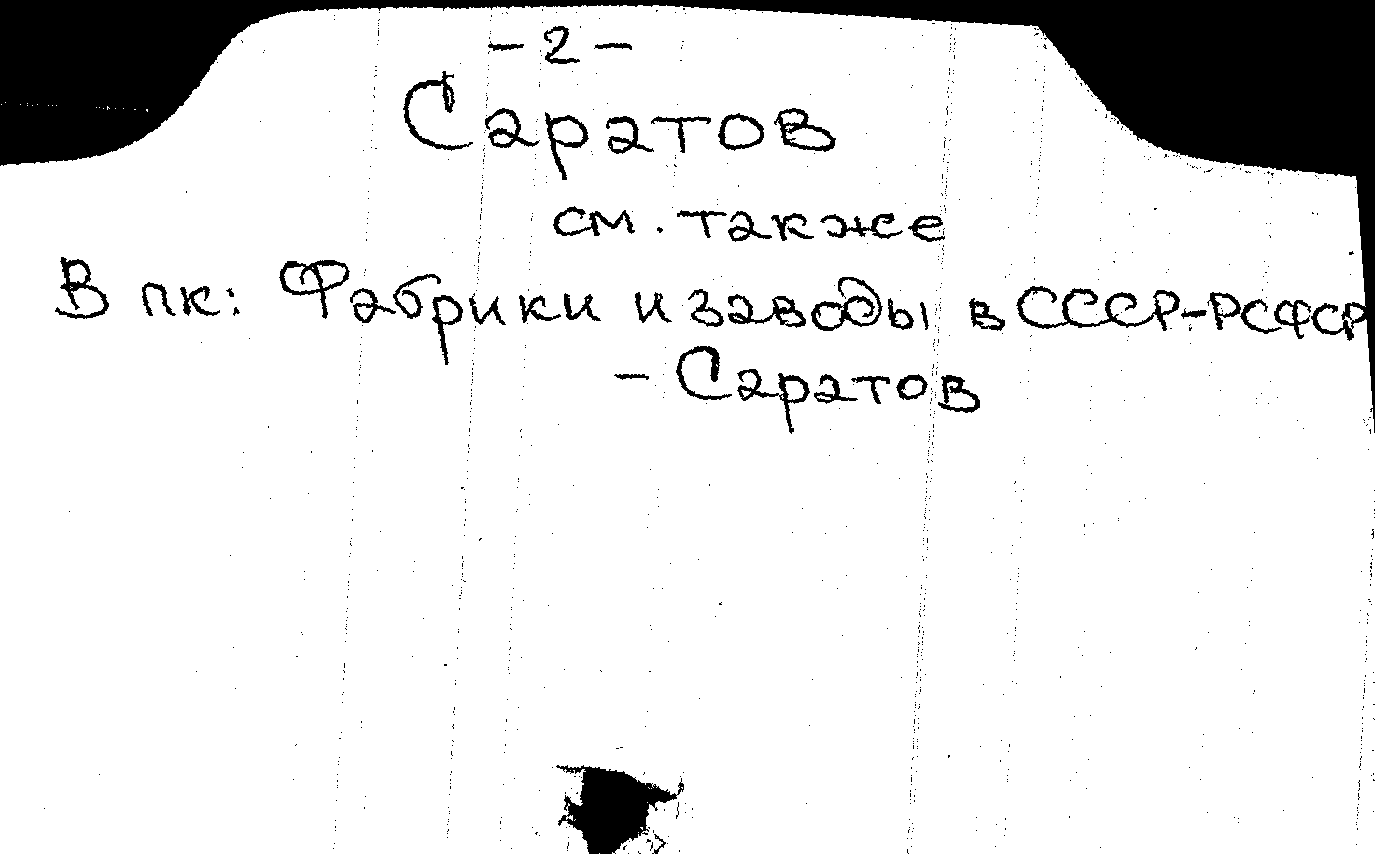 - 2 -
Саратов
см. также
В пк: Фабрики и заводы в СССР-РСФСР
- Саратов